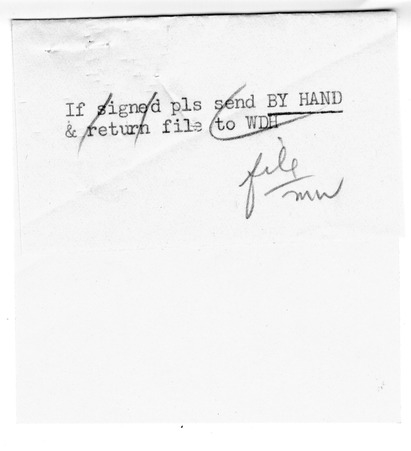 If signed pls send BY HAND
& return file to WDH
file
mw